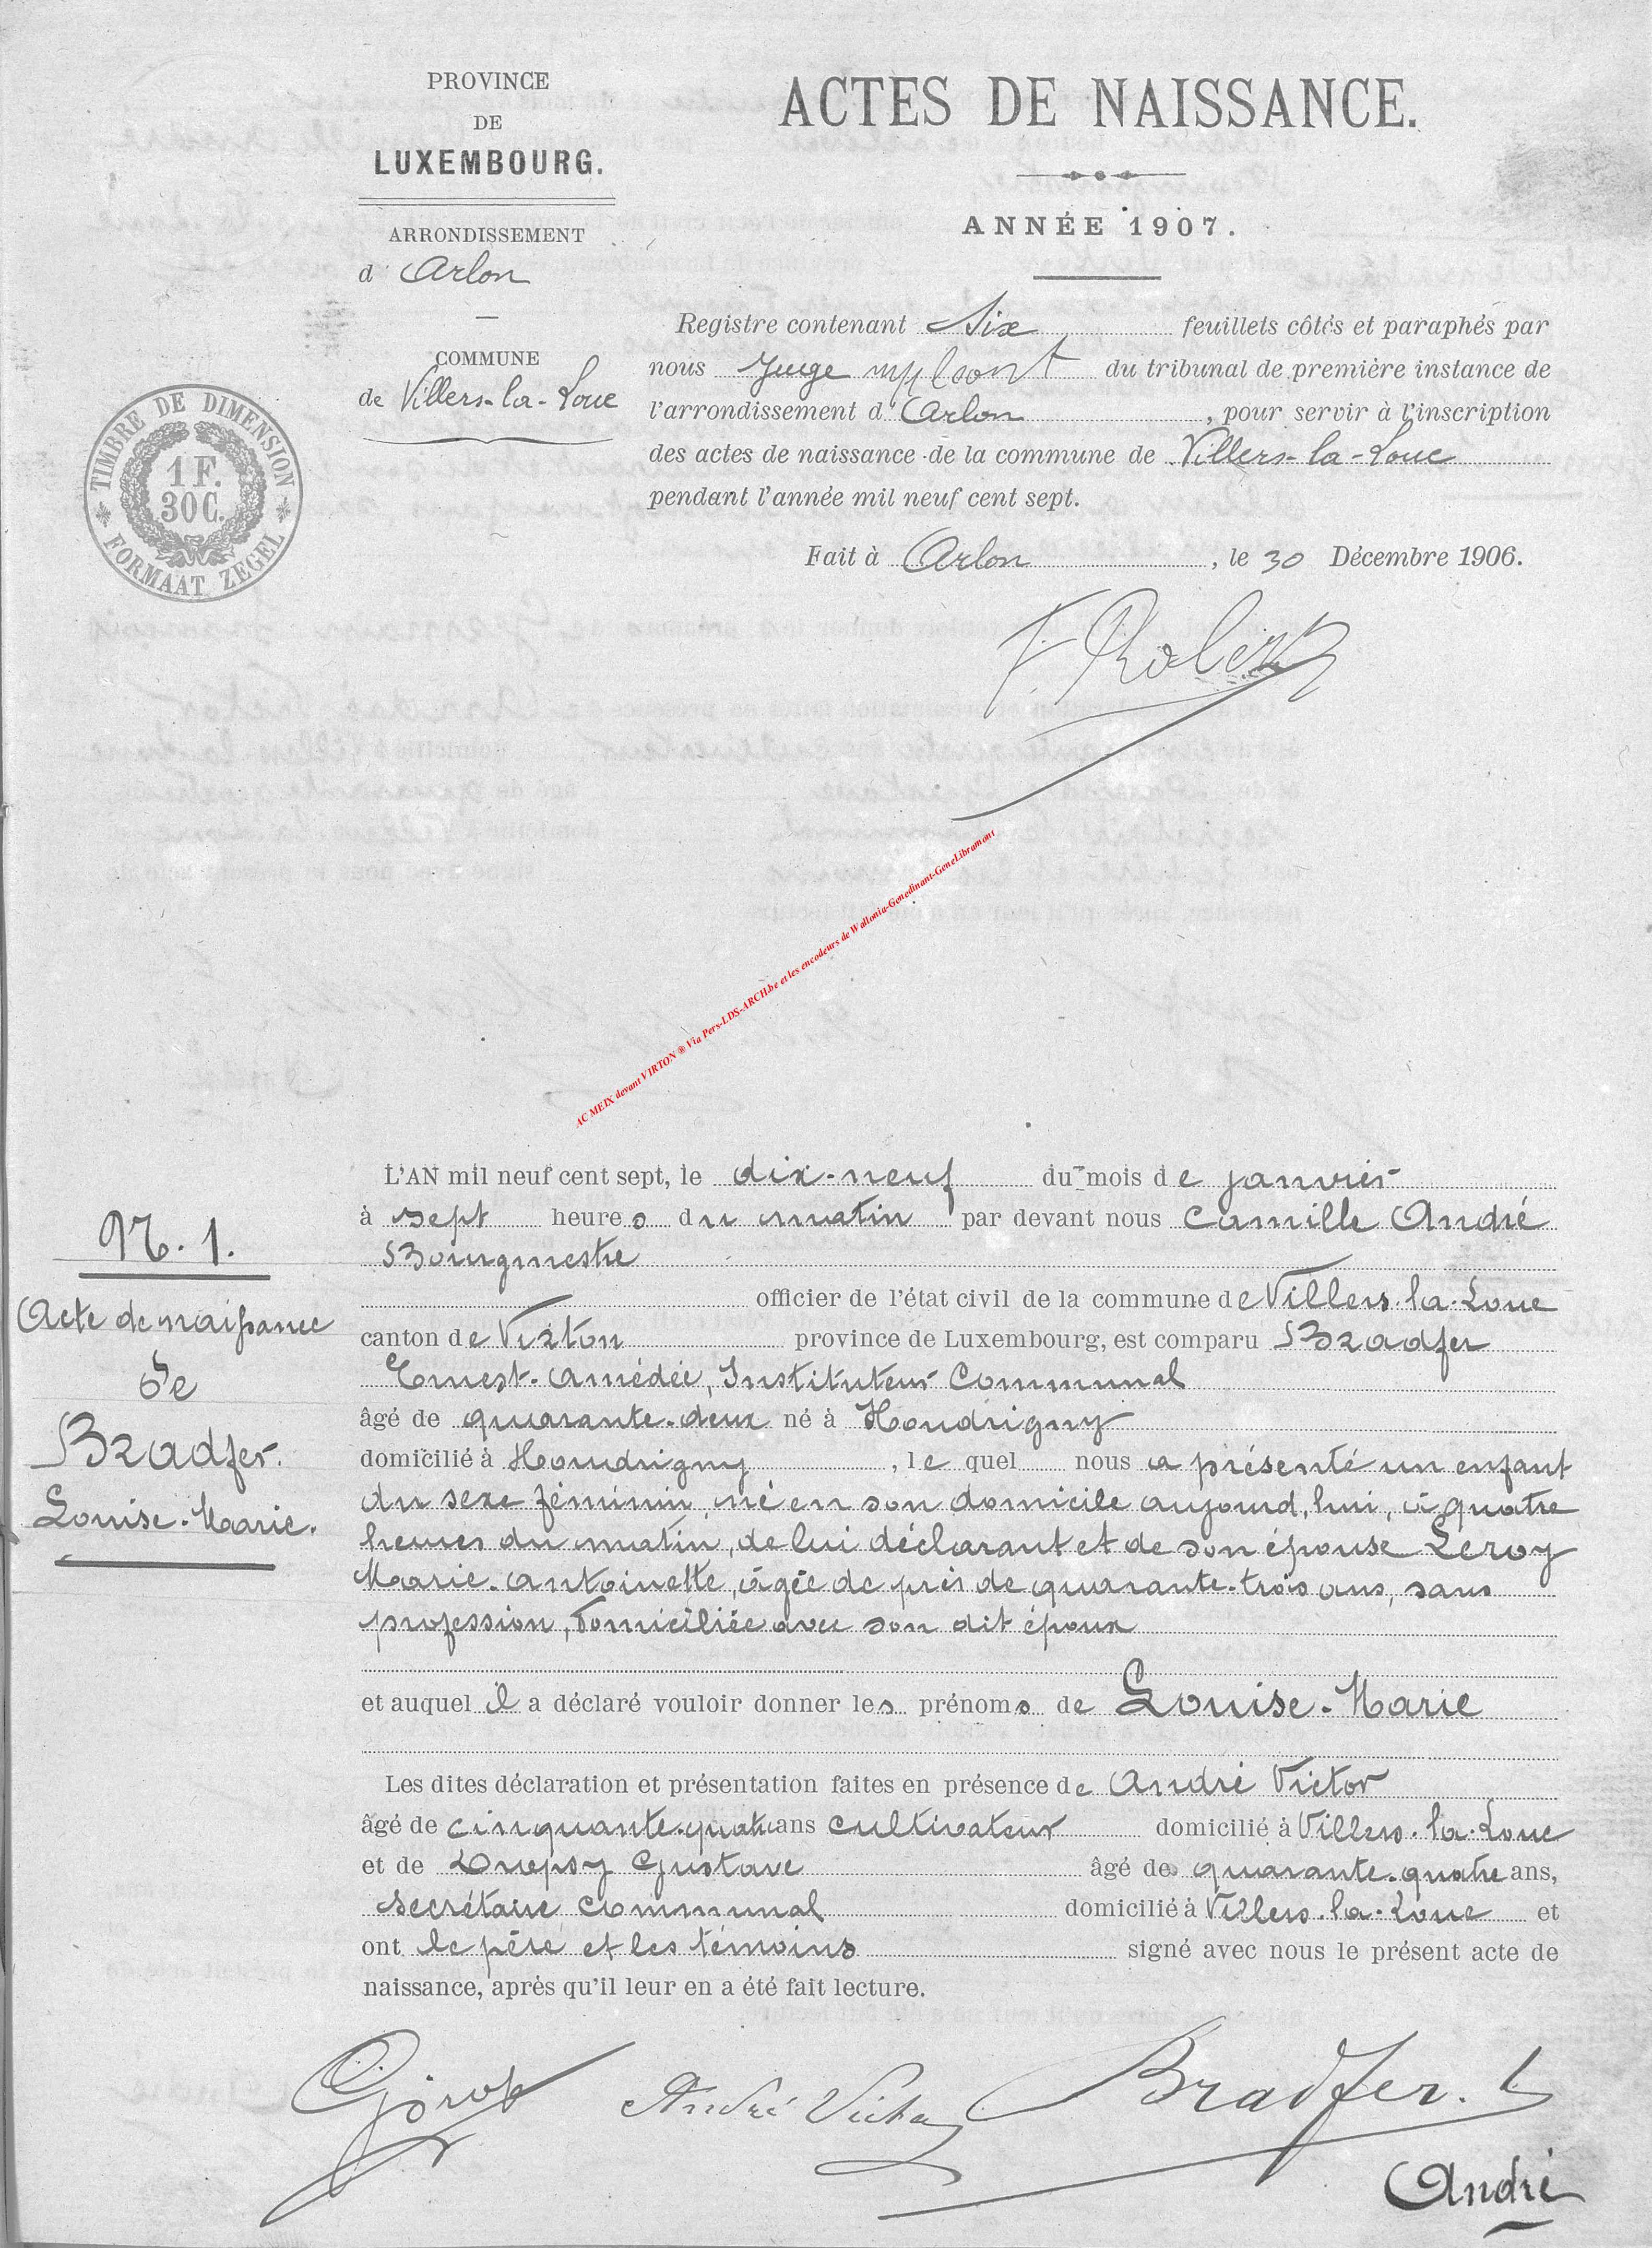 PROVINCE
DE
LUXEMBOURG.
ARRONDISSEMENT
d' Arlon
COMMUNE
de Villers-la-Loue
TIMBRE DE DIMENSION
1 F.
30 C.
FORMAAT ZEGEL
ACTES DE NAISSANCE.
ANNÉE 1907.
Registre contenant Six feuillets côtés et paraphés par
nous Juge du tribunal de première instance de
l'arrondissement d' Arlon, pour servir à l'inscription
des actes de naissance de la commune de Villers-la-Loue
pendant l'année mil neuf cent sept.
Fait à Arlon, le 30 Décembre 1906.
AC MEIX devant VIRTON ® Via Pers-LDS-ARCH.be et les encodeurs de Wallonia-Genedinant-GeneLibramont
N. 1.
Acte de naissance
de
Bradfer.
Louise-Marie.
L'AN mil neuf cent sept, le dix-neuf du mois de janvier
à sept heures du matin par devant nous Camille André
Bourgmestre
officier de l'état civil de la commune de Villers-la-Loue
canton de Virton province de Luxembourg, est comparu Bradfer
Ernest-Amédée, Instituteur Communal
âgé de quarante-deux né à Houdrigny
domicilié à Houdrigny, le quel nous a présenté un enfant
du sexe féminin, né en son domicile aujourd'hui, à quatre
heures du matin, de lui déclarant et de son épouse Leroy
Marie-Antoinette, âgée de près de quarante-trois ans, sans
profession, domiciliée avec son dit époux
et auquel il a déclaré vouloir donner les prénoms de Louise-Marie
Les dites déclaration et présentation faites en présence de André Victor
âgé de cinquante-quatre ans cultivateur domicilié à Villers-la-Loue
et de Gustave âgé de quarante-quatre ans,
secrétaire communal domicilié à Villers-la-Loue et
ont le père et les témoins signé avec nous le présent acte de
naissance, après qu'il leur en a été fait lecture.
André Victor Bradfer. E
André